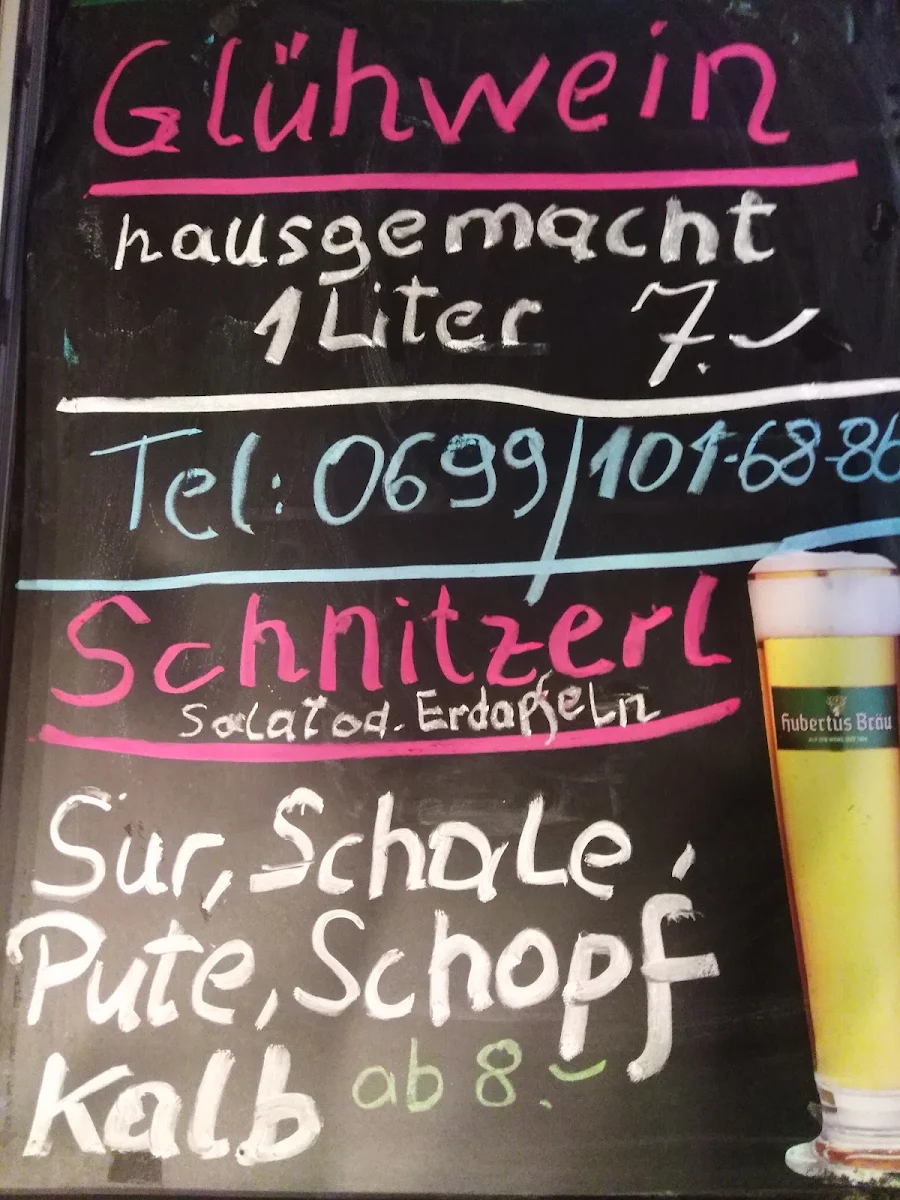 Glühwein
hausgemacht
1 Liter 7.-
Tel: 0699/101-68-86
Schnitzerl
Salat od. Erdäpfeln
Hubertus Bräu
Sur, Schale,
Pute, Schopf
Kalb ab 8.-